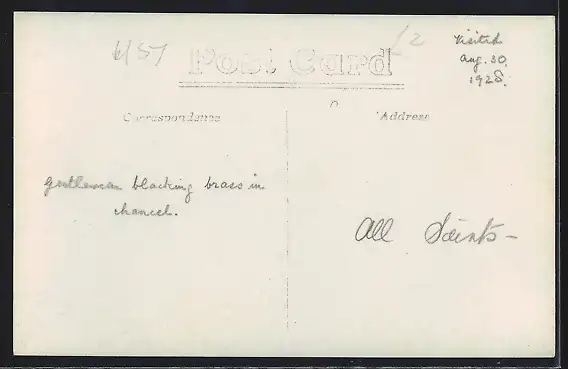 6/57
Post Card
£2
Visited
Aug. 30.
1928.
Correspondence
Address
Gentleman blacking brass in
chancel.
All Saints -